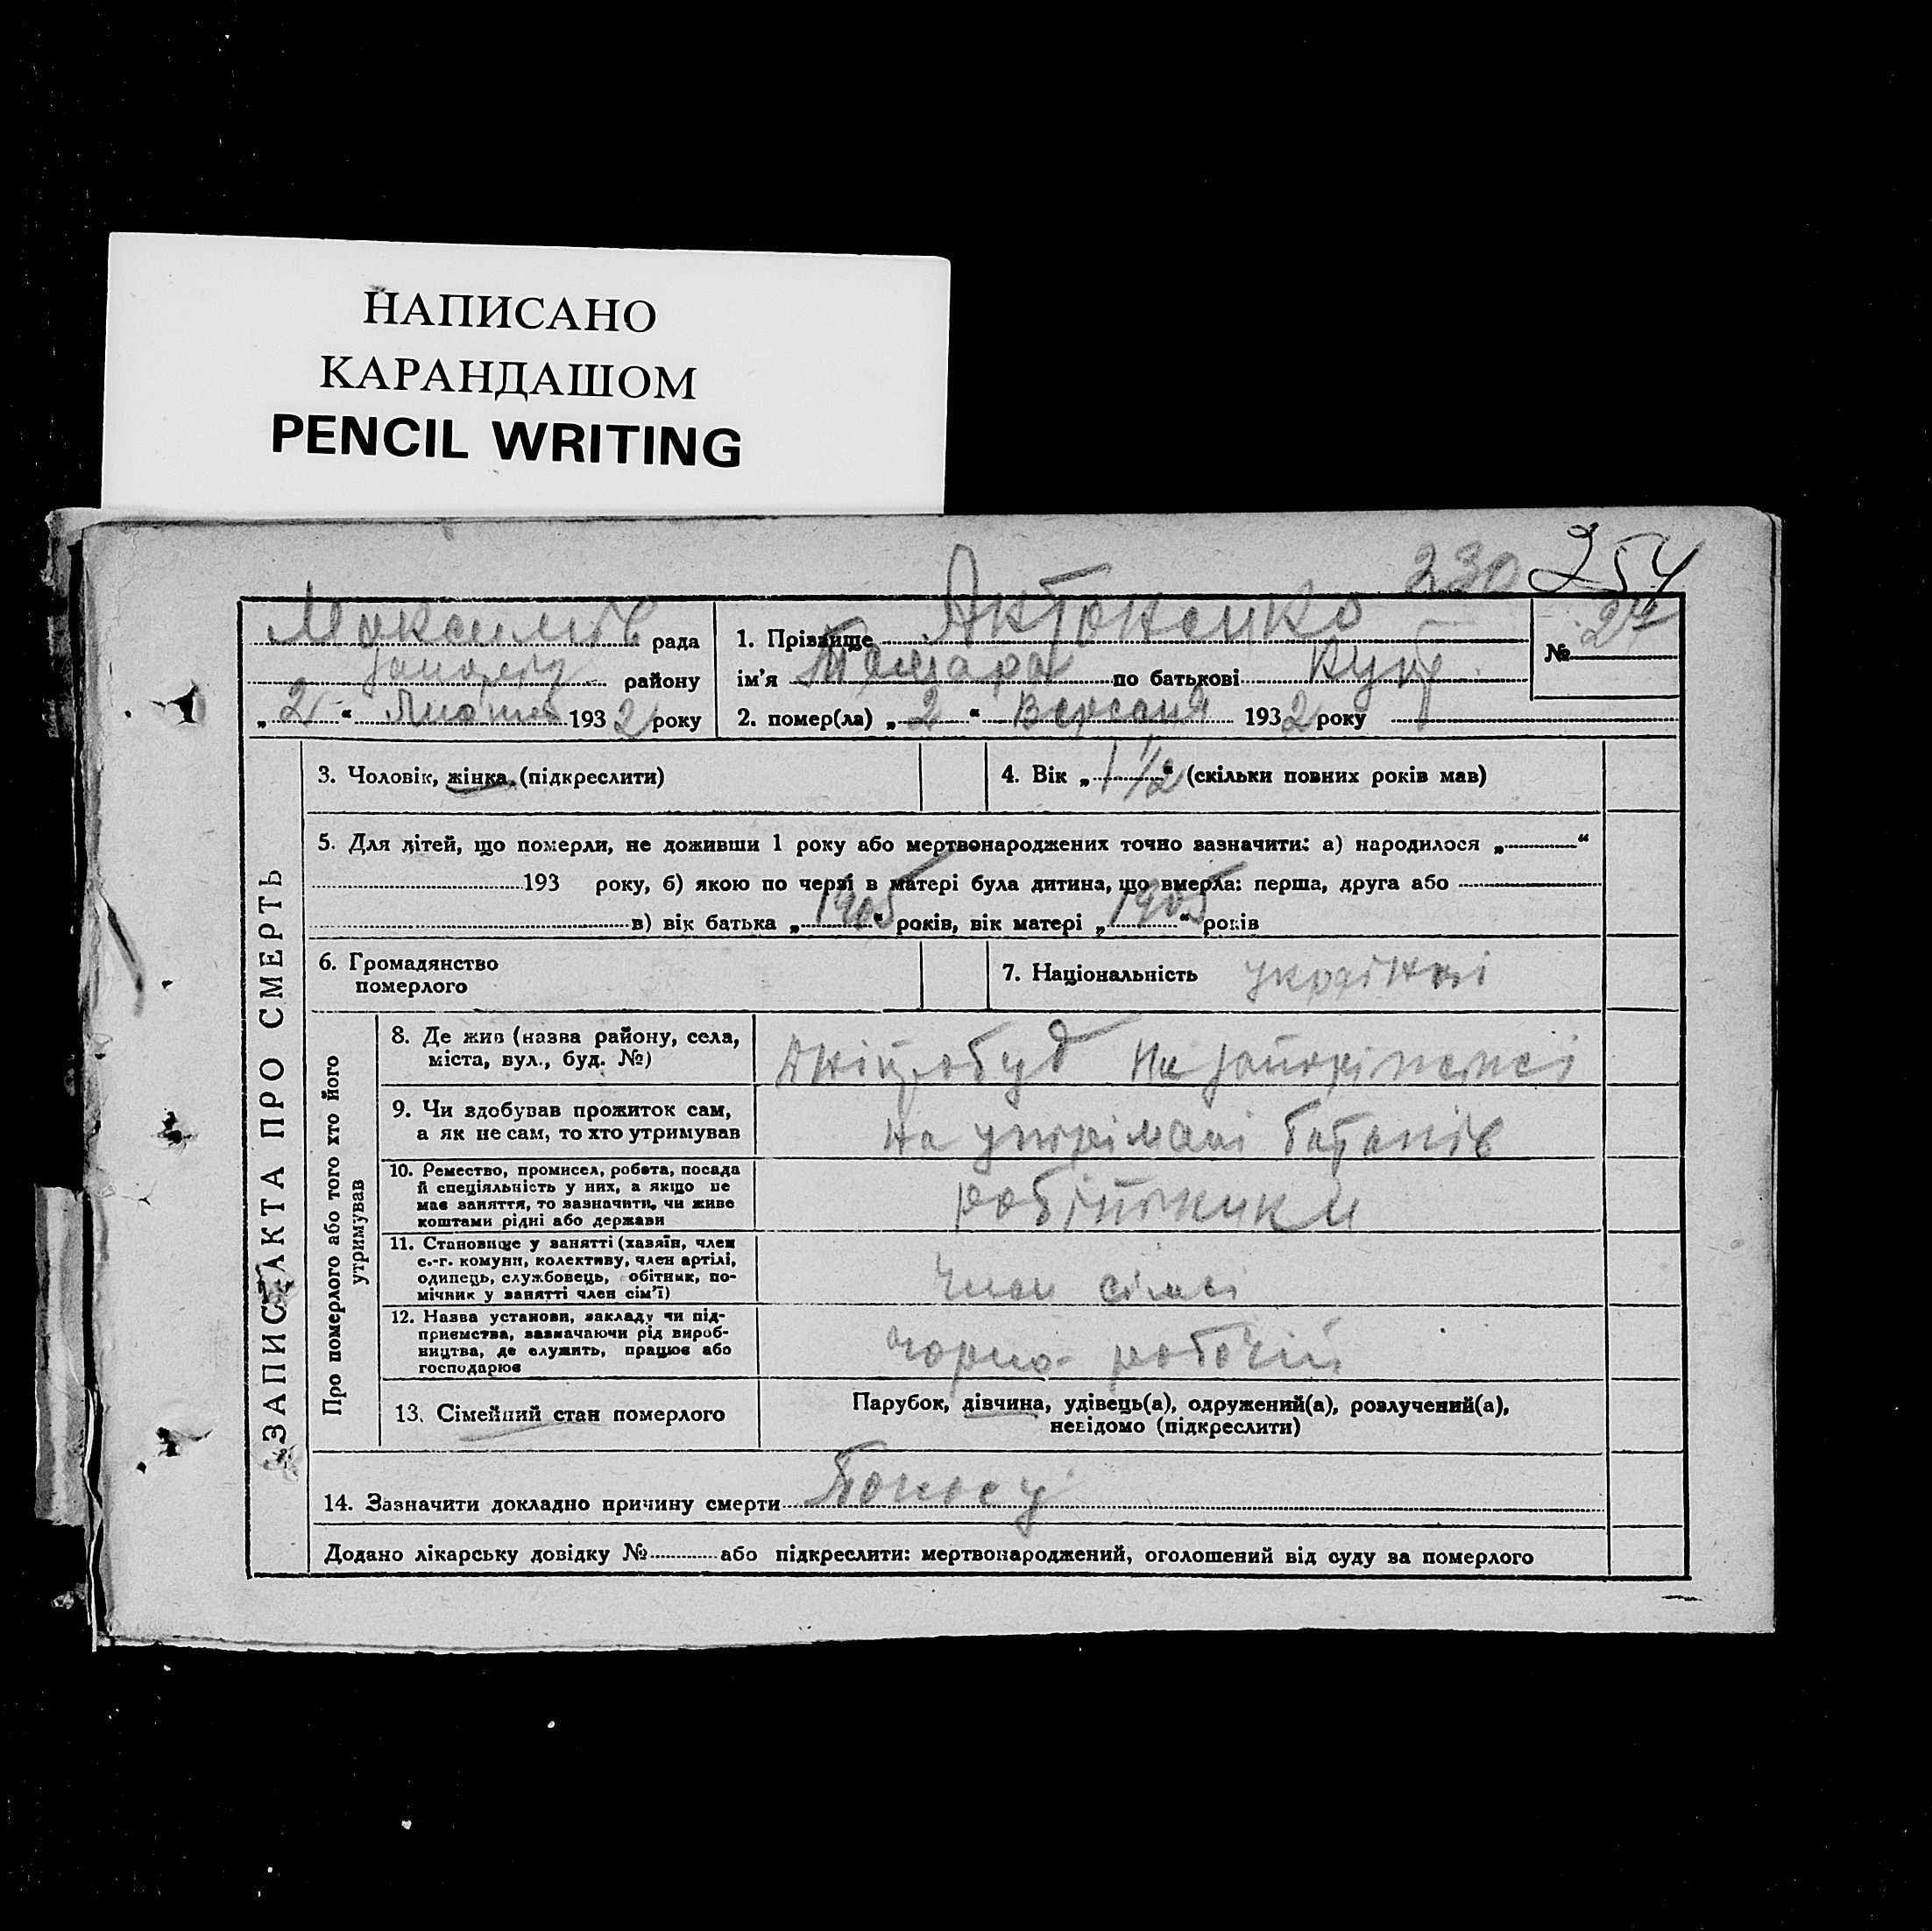 НАПИСАНО
КАРАНДАШОМ
PENCIL WRITING
230 254
рада
району
„ 2 “ 193 2 року
1. Прізвище Антоненко
ім’я Тамара по батькові
2. помер(ла) „ 2 “ 193 2 року
№ 24
ЗАПИС АКТА ПРО СМЕРТЬ
3. Чоловік, жінка (підкреслити)
4. Вік „ 1 1/2 “ (скільки повних років мав)
5. Для дітей, що померли, не доживши 1 року або мертвонароджених точно зазначити: а) народилося „ “
193 року, б) якою по черзі в матері була дитина, що вмерла: перша, друга або
в) вік батька „ 1905 “ років, вік матері „ 1905 “ років
6. Громадянство
померлого
7. Національність
Про померлого або того хто його
утримував
8. Де жив (назва району, села,
міста, вул., буд. №)
9. Чи здобував прожиток сам,
а як не сам, то хто утримував
на батьків
10. Ремество, промисел, робота, посада
й спеціяльність у них, а якщо не
має заняття, то зазначити, чи живе
коштами рідні або держави
робітники
11. Становище у занятті (хазяїн, член
с.-г. комуни, колективу, член артілі,
одинець, службовець, обітник, по-
мічник у занятті член сім’ї)
член сімьі
12. Назва установи, закладу чи під-
приємства, зазначаючи рід вироб-
ництва, де служить, працює або
господарює
чорно-робочій
13. Сімейний стан померлого
Парубок, дівчина, удівець(а), одружений(а), розлучений(а),
невідомо (підкреслити)
14. Зазначити докладно причину смерти
Додано лікарську довідку № або підкреслити: мертвонароджений, оголошений від суду за померлого